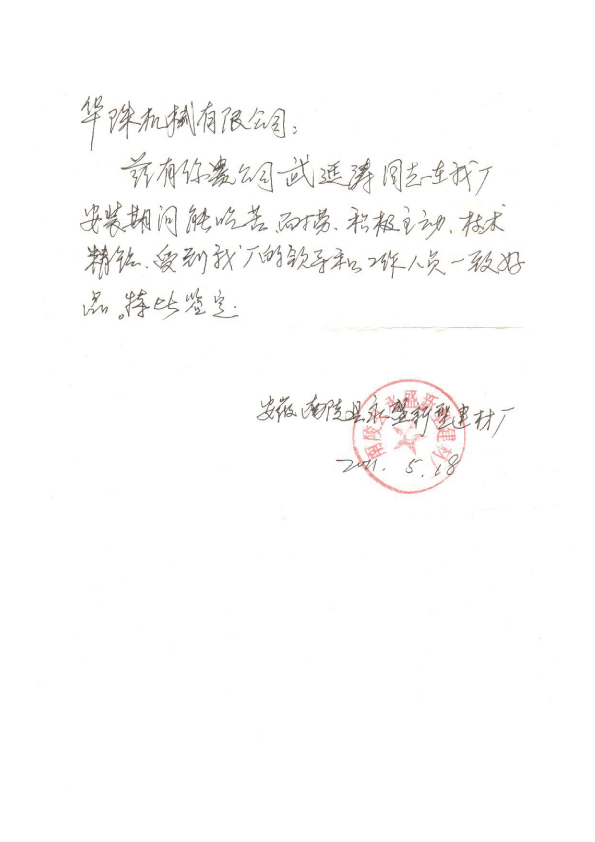 华珠机械有限公司:
兹有你贵公司武延涛同志在我厂
安装期间能吃苦而劳、积极主动、技术
精钻、受到我厂的领导和工作人员一致好
品。特此签定.
安徽南陵县永盛新型建材厂
2011. 5. 18
南陵县永盛新型建材厂